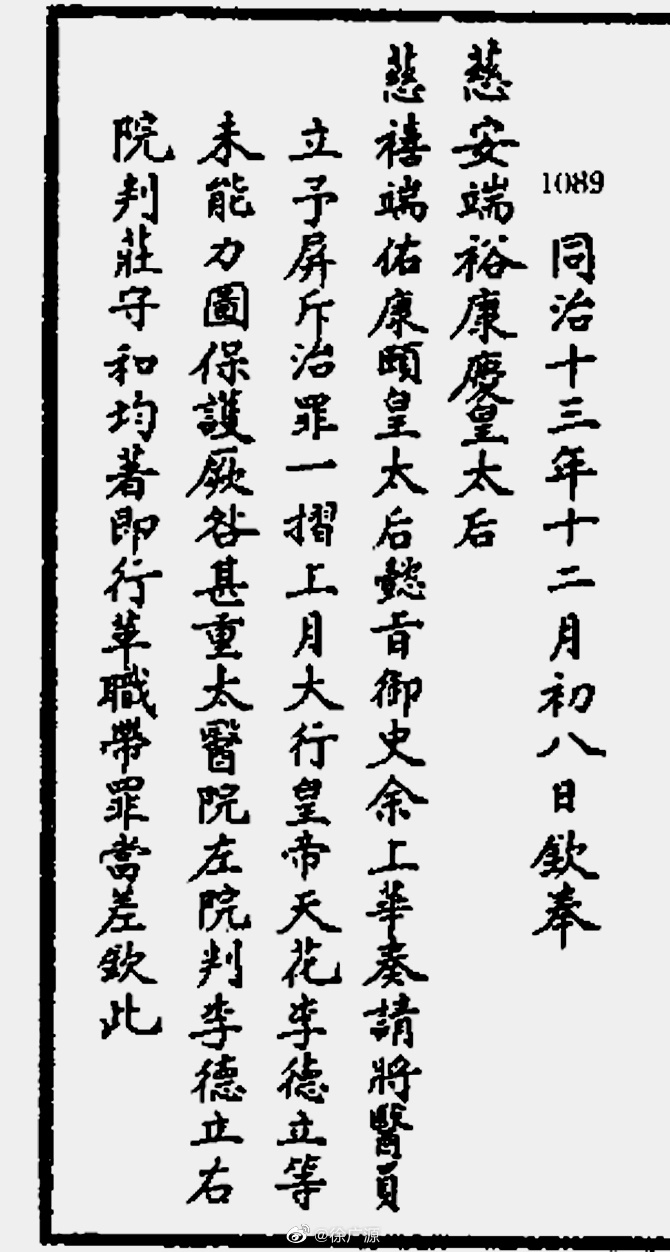 1089
同治十三年十二月初八日欽奉
慈安端裕康慶皇太后
慈禧端佑康頤皇太后懿旨御史余上華奏請將醫員
立予屏斥治罪一摺上月大行皇帝天花李德立等
未能力圖保護厥咎甚重太醫院左院判李德立右
院判莊守和均著即行革職帶罪當差欽此
@徐广源